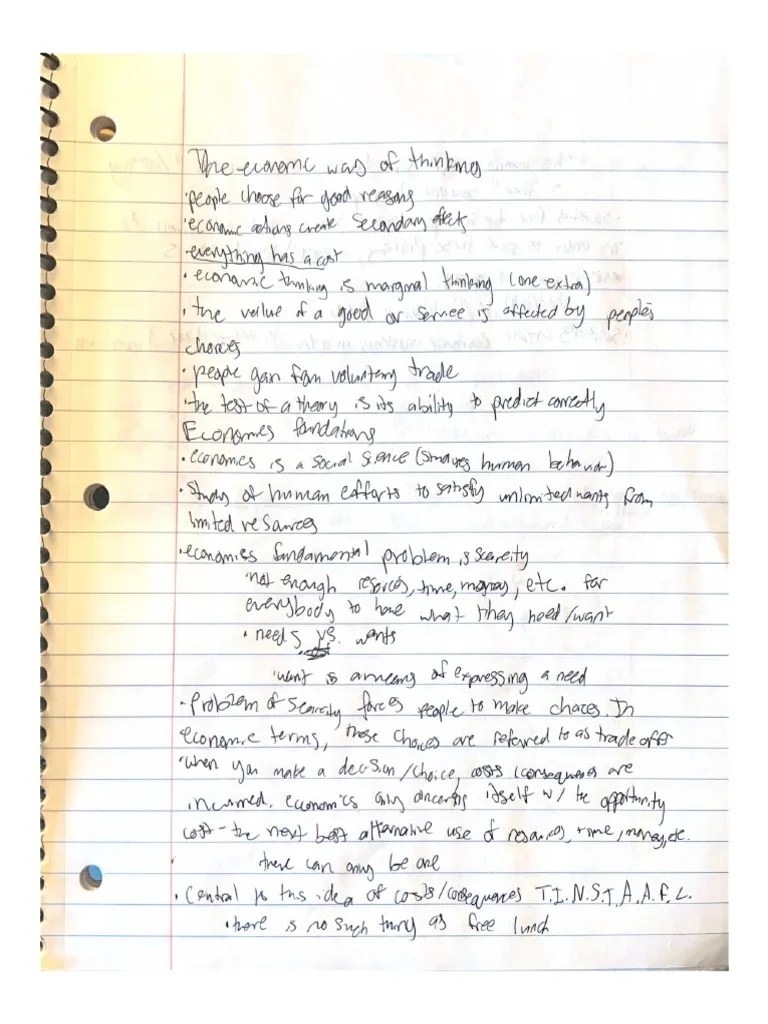 The economic way of thinking
·people choose for good reasons
·economic actions create secondary effects
·everything has a cost
·economic thinking is marginal thinking (one extra)
·the value of a good or service is affected by people's
choices
·people gain from voluntary trade
·the test of a theory is its ability to predict correctly
Economics foundations
·economics is a social science (studies human behavior)
·Study of human efforts to satisfy unlimited wants from
limited resources
·economics fundamental problem is scarcity
·not enough resorces, time, money, etc. for
everybody to have what they need/want
·needs vs. wants
·want is a means of expressing a need
·Problem of scarcity forces people to make choices. In
economic terms, these choices are referred to as trade offs
·when you make a decision/choice, costs/consequences are
incurred. economics only concerns itself w/ the opportunity
cost - the next best alternative use of resources, time, money, etc.
· there can only be one
·Central to this idea of costs/consequences T.I.N.S.T.A.A.F.L.
·there is no such thing as free lunch